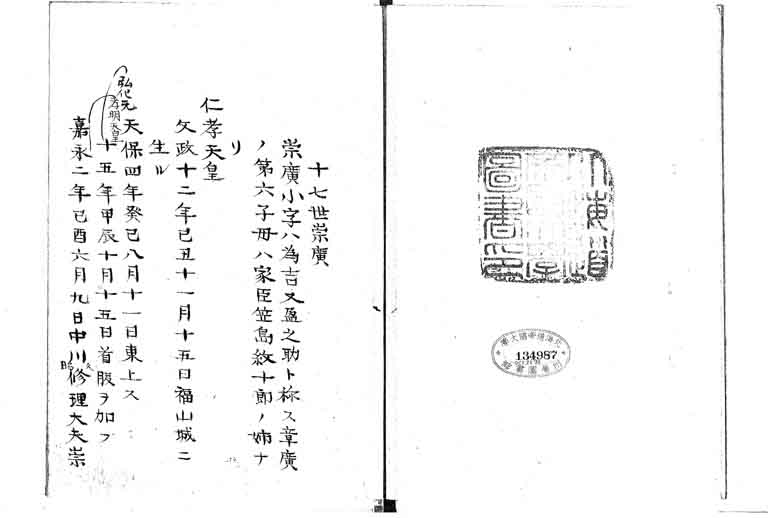 北海道
帝國大學
圖書印
北海道帝國大學
134987
附屬圖書館
十七世崇廣
崇廣小字ハ為吉又盈之助ト称ス章廣
ノ第六子母ハ家臣笠島紋十郎ノ姉ナ
リ
仁孝天皇
文政十二年己丑十一月十五日福山城ニ
生ル
天保四年癸巳八月十一日東上ス
弘化元
孝明天皇
十五年甲辰十月十五日首服ヲ加フ
嘉永二年己酉六月九日中川修理大夫崇